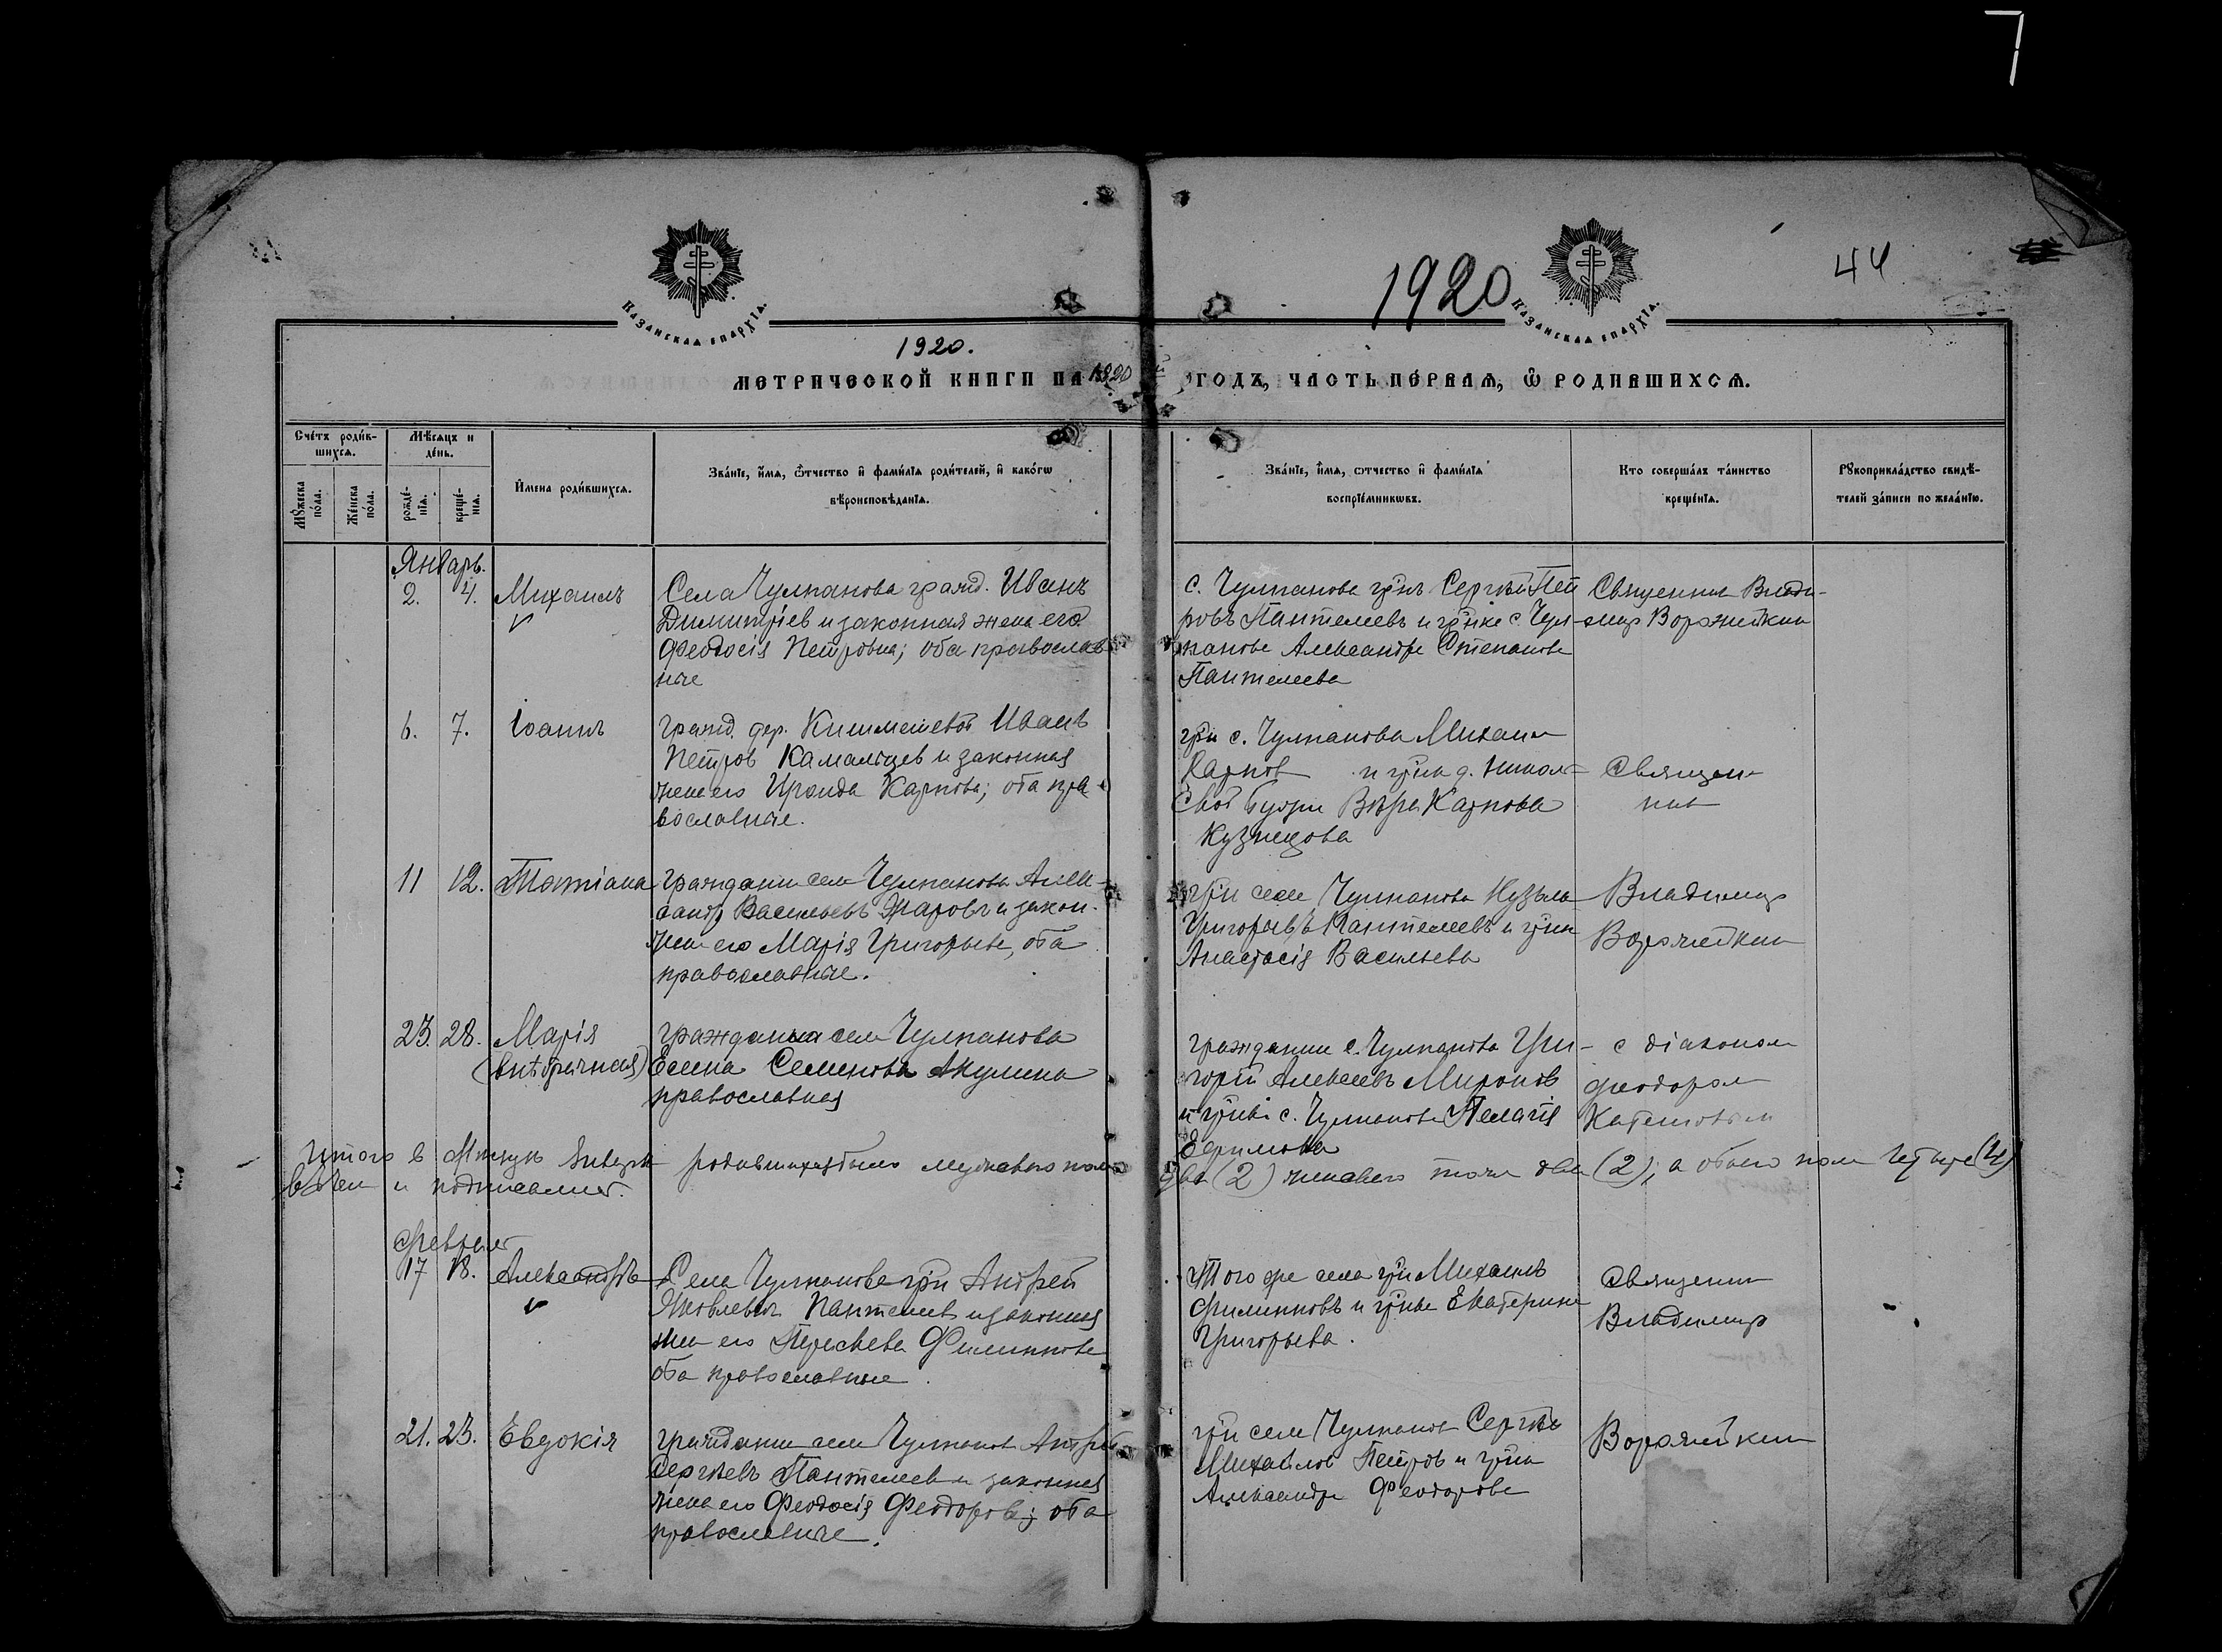 7
1920
44
Казанская епархїа.
Казанская епархїа.
1920.
МЕТРИЧЕСКОЙ КНИГИ НА 1920 й ГОДЪ, ЧАСТЬ ПЕРВАЯ, Ѡ РОДИВШИХСЯ.
Счетъ родив-
шихся.
Мѣсяцъ и
день.
Мужеска
пола.
Женска
пола.
рожде-
нїя.
креще-
нїя.
Имена родившихся.
Званїе, имя, ѿчество и фамилїя родителей, и какогѡ
вѣроисповѣданїя.
Званїе, имя, отчество и фамилїя
воспрїемникωвъ.
Кто совершалъ таинство
крещенїя.
Рукоприкладство свидѣ-
телей записи по желанїю.
Январь.
2. 4. Михаилъ
Села Чулпанова гражд. Иванъ
Димитріев и законная жена его
Феодосія Петровна; оба православ
ные
с. Чулпанова гр̃нъ Сергѣй Пет
ровъ Пантелеевъ и гр̃нка с. Чул-
панова Александра Степанова
Пантелеева
Священник Влади-
мир Воронейкин
6. 7. Іоаннъ
гражд. дер. Иванъ
Петров Камальцев и законная
жена его Ираида Карпова; оба пра
вославные.
гр̃н с. Чулпанова Михаил
Карпов и гр̃нка д. Никол
Вѣра Карпова
Кузнецова
Священ
ник
11 12. Татіана
Гражданин села Чулпанова Алек-
сандр Васильевъ Жаровъ и закон.
жена его Марія Григорьева, оба
православные.
гр̃н села Чулпанова Кузьма
Григорьевъ Пантелеевъ и гр̃нка
Анастасія Васильева
Владимир
Воронейкин
23. 28. Марія
(внѣбрачная)
Гражданка села Чулпанова
Елена Семенова Акулина
православная
Гражданин с. Чулпанова Гри-
горій Алексеевъ Миронов
и гр̃нка с. Чулпанова Пелагія
Ефимова
с діаконом
Феодором
Итого в Мѣсяцѣ Январѣ родившихся было мужского пола
два (2) женского тоже два (2); а обоего пола четыре (4)
в чем и подписались.
Февраль
17 18. Александръ
Села Чулпанова гр̃н Андрей
Яковлевич Пантелеев и законная
жена его Параскева Филиппова
оба православные.
Того же села гр̃н Михаилъ
Филипповъ и гр̃нка Екатерина
Григорьева.
Священник
Владимир
21. 23. Евдокія
Гражданин села Чулпанова Андрей
Сергѣевъ Пантелеев и законная
жена его Феодосія Феодорова; оба
православные.
гр̃н села Чулпанова Сергѣй
Михайлов Петров и гр̃нка
Александра Феодорова
Воронейкин